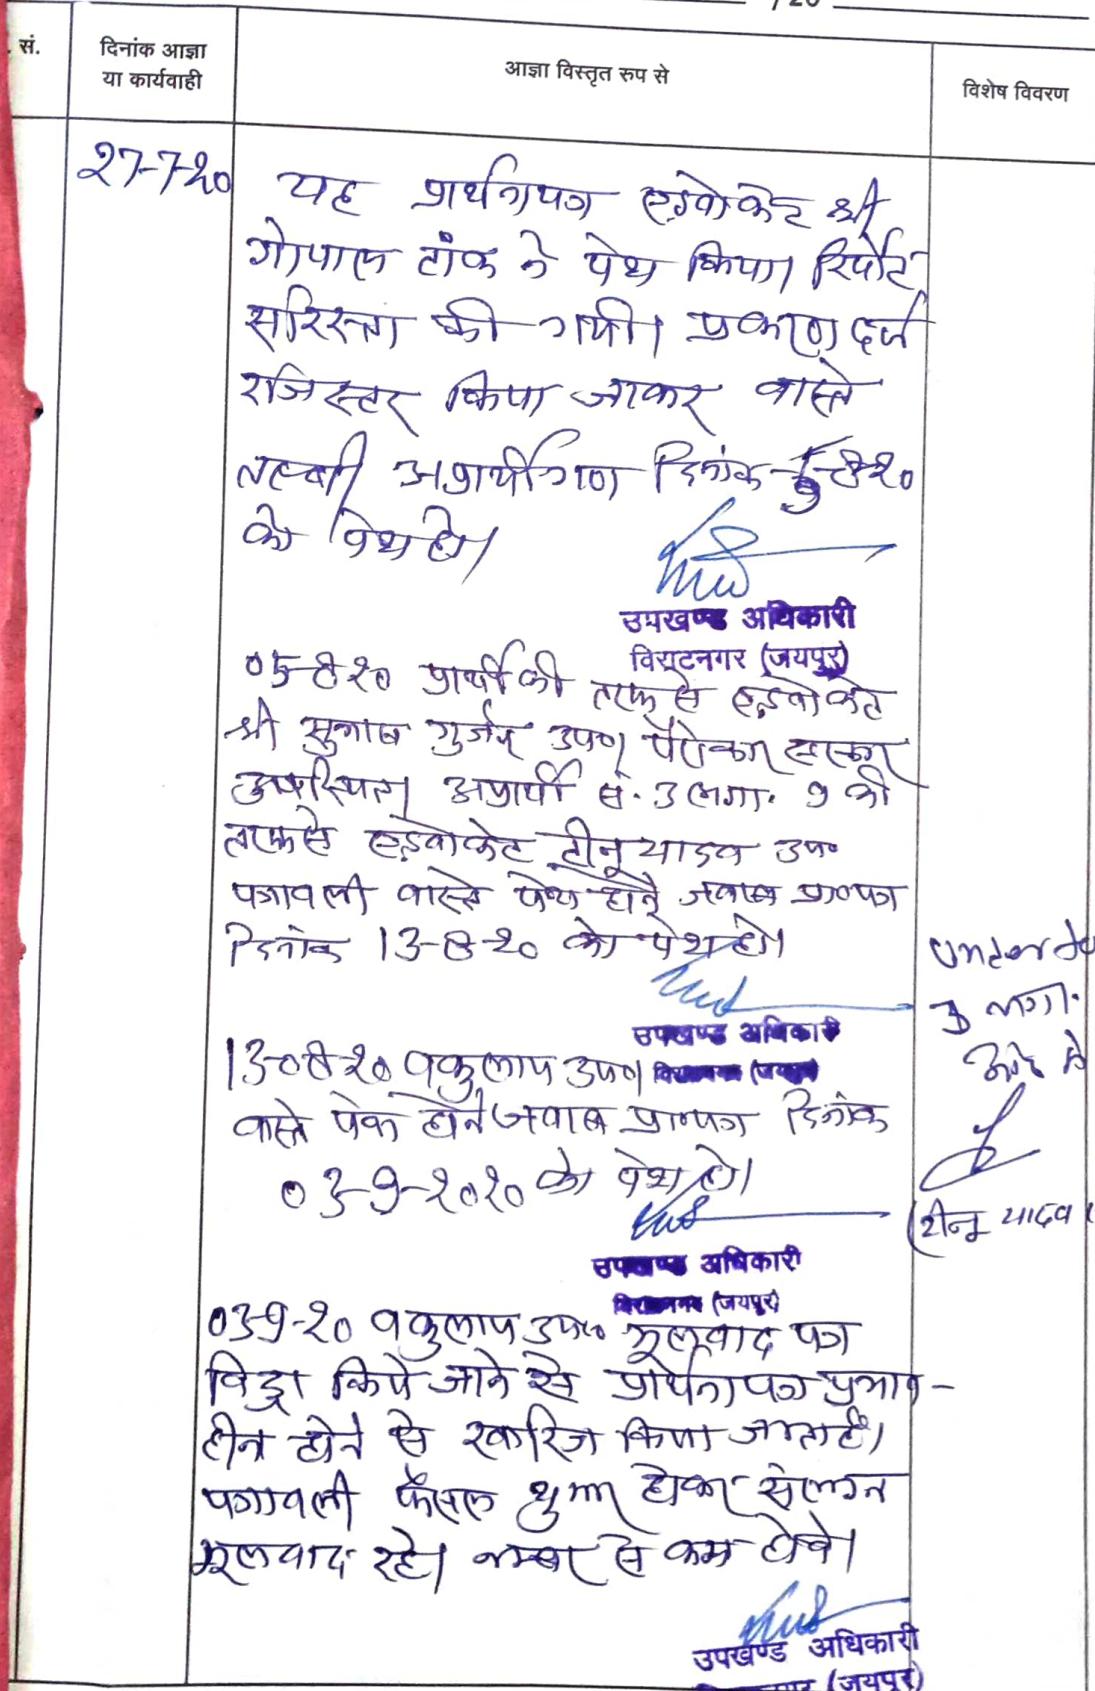 /20
सं.
दिनांक आज्ञा
या कार्यवाही
आज्ञा विस्तृत रुप से
विशेष विवरण
27-7-20 यह प्रार्थनापत्र एडवोकेट श्री
गोपाल टांक ने पेश किया। रिपोर्ट
सरिस्ता की गयी। प्रकरण दर्ज
रजिस्टर किया जाकर वास्ते
तलबी अप्रार्थीगण दिनांक 5-8-20
को पेश हो।
उपखण्ड अधिकारी
विराटनगर (जयपुर)
05-8-20 प्रार्थी की तरफ से एडवोकेट
श्री सुभाष गुर्जर उप०। पैरोकार सरकार
उपस्थित। अप्रार्थी सं. 3 लगा. 9 की
तरफ से एडवोकेट टीनू यादव उप०
पत्रावली वास्ते पेश होने जवाब प्रा०पत्र
दिनांक 13-8-20 को पेश हो।
उपखण्ड अधिकारी
विराटनगर (जयपुर)
3 लगा.
(टीनू यादव)
13-08-20 वकुलाय उप०।
वास्ते पेश होने जवाब प्रा०पत्र दिनांक
03-9-2020 को पेश हो।
उपखण्ड अधिकारी
विराटनगर (जयपुर)
03-9-20 वकुलाय उप० मूलवाद पत्र
विड्रा किये जाने से प्रार्थनापत्र प्रभाव-
हीन होने से खारिज किया जाता है।
पत्रावली फैसल शुमार होकर संलग्न
मूलवाद रहे। नम्बर से कम होवे।
उपखण्ड अधिकारी
(जयपुर)